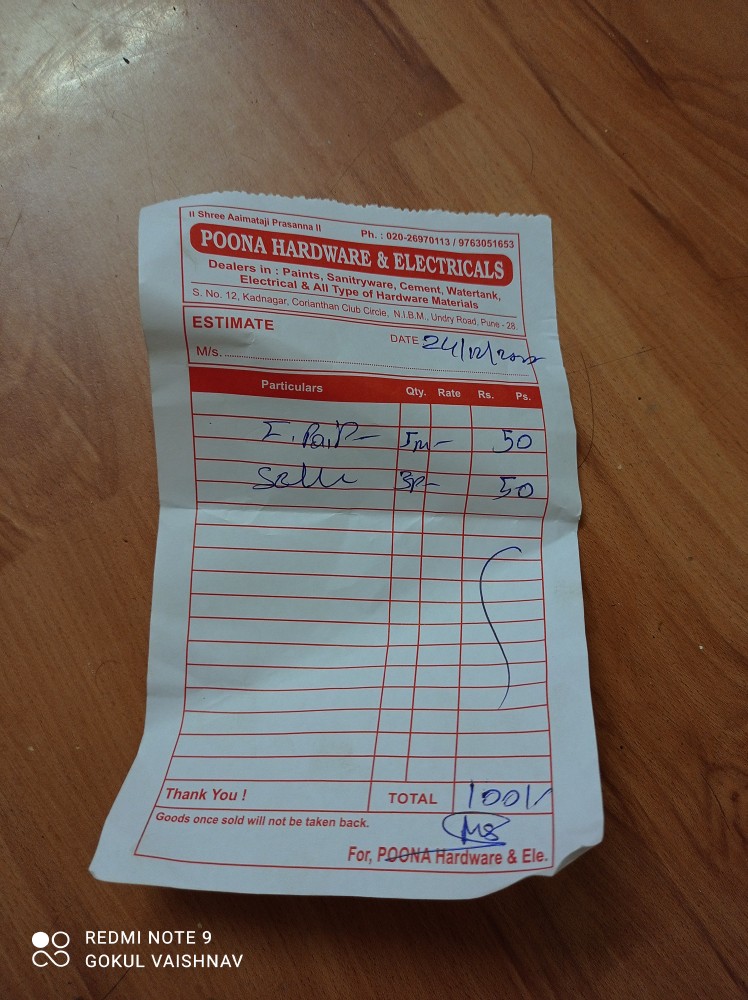 II Shree Aaimataji Prasanna II
Ph. : 020-26970113 / 9763051653
POONA HARDWARE & ELECTRICALS
Dealers in : Paints, Sanitryware, Cement, Watertank,
Electrical & All Type of Hardware Materials
S. No. 12, Kadnagar, Corianthan Club Circle, N.I.B.M., Undry Road, Pune - 28.
ESTIMATE
DATE 24/12/2022
M/s.
Particulars Qty. Rate Rs. Ps.
50
50
Thank You ! TOTAL 100/-
Goods once sold will not be taken back.
For, POONA Hardware & Ele.
REDMI NOTE 9
GOKUL VAISHNAV